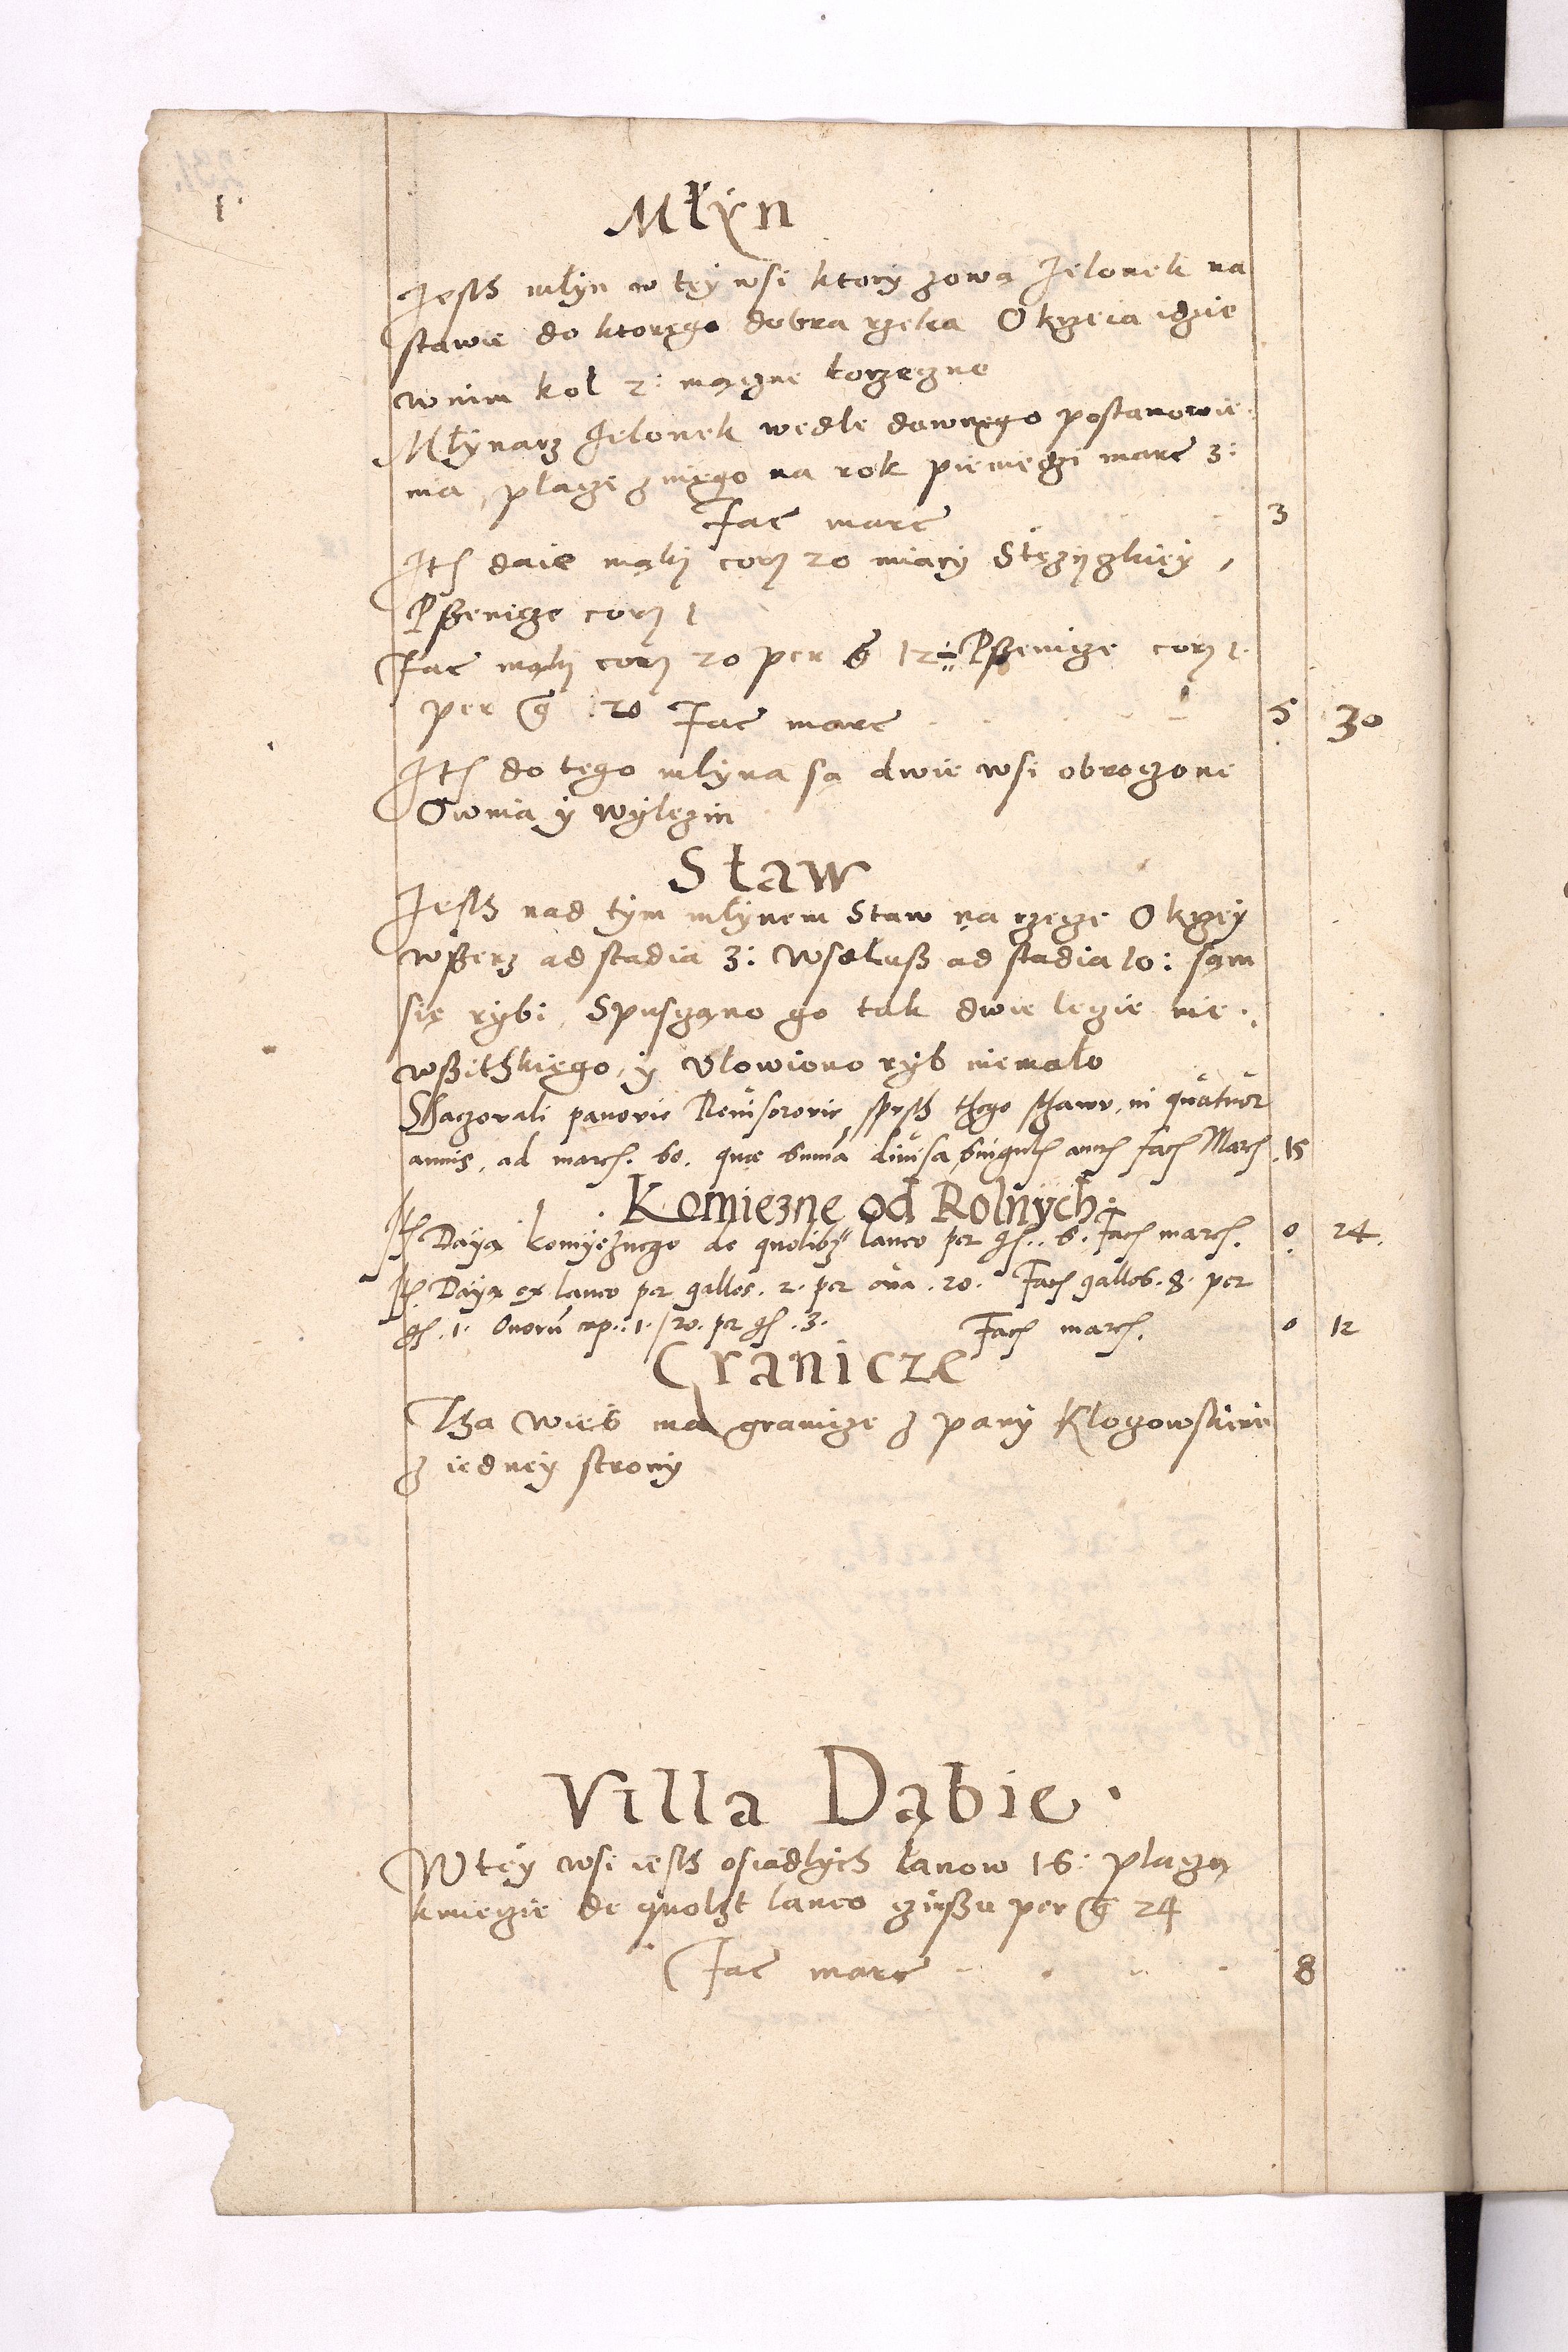 Młyn
Jesth młyn w tey wsi ktory zowa Jelonek na
stawie do ktorego dobra rzeka Okrzeia idzie
w nim kol 2: mączne korzeczne
Młynarz Jelonek wedle dawnego postanowie
nia, placze z niego na rok pieniędzi marc 3:
Fac marc 3
Ith daie mąki cor 20 miary Stęzyczkiey,
Pszenicze cor 1
Fac mąki cor 20 per g 12 Pszenicze cor 1.
per g 20 Fac marc 5 30
Ith do tego młyna są dwie wsi obroczone
Ownia y Wylezin
Staw
Jesth nad tym młynem Staw na rzecze Okrzey
wszerz ad stadia 3: Wsdłusz ad stadia 10: sam
się rybi, Spusczano go tak dwie lecie nie
wszithkiego, y Ulowiono ryb niemało
Shaczovali panovie Revisorovie, spusth thego sthawu, in quatuor
annis, ad march. 60. quae suma divisa, singulis annis fach March 15
Komiezne od Rolnych.
Ith Daya komyeznego de quolibz laneo per gs. 6. Fach march. 0 24.
Ith Daya ex laneo per gallos. 2. per ova. 20. Fach gallos. 8. per
gs. 1. Ovorum cap. 1./20. per gs. 3. Fach march. 0 12
Granicze
Tha wies ma granicze z pany Kloczowskiemi
z iedney strony
Villa Dąbie.
W tey wsi iesth osiadlych łanow 16: placzą
kmiecie de quolzt laneo czinszu per g 24
Fac marc 8